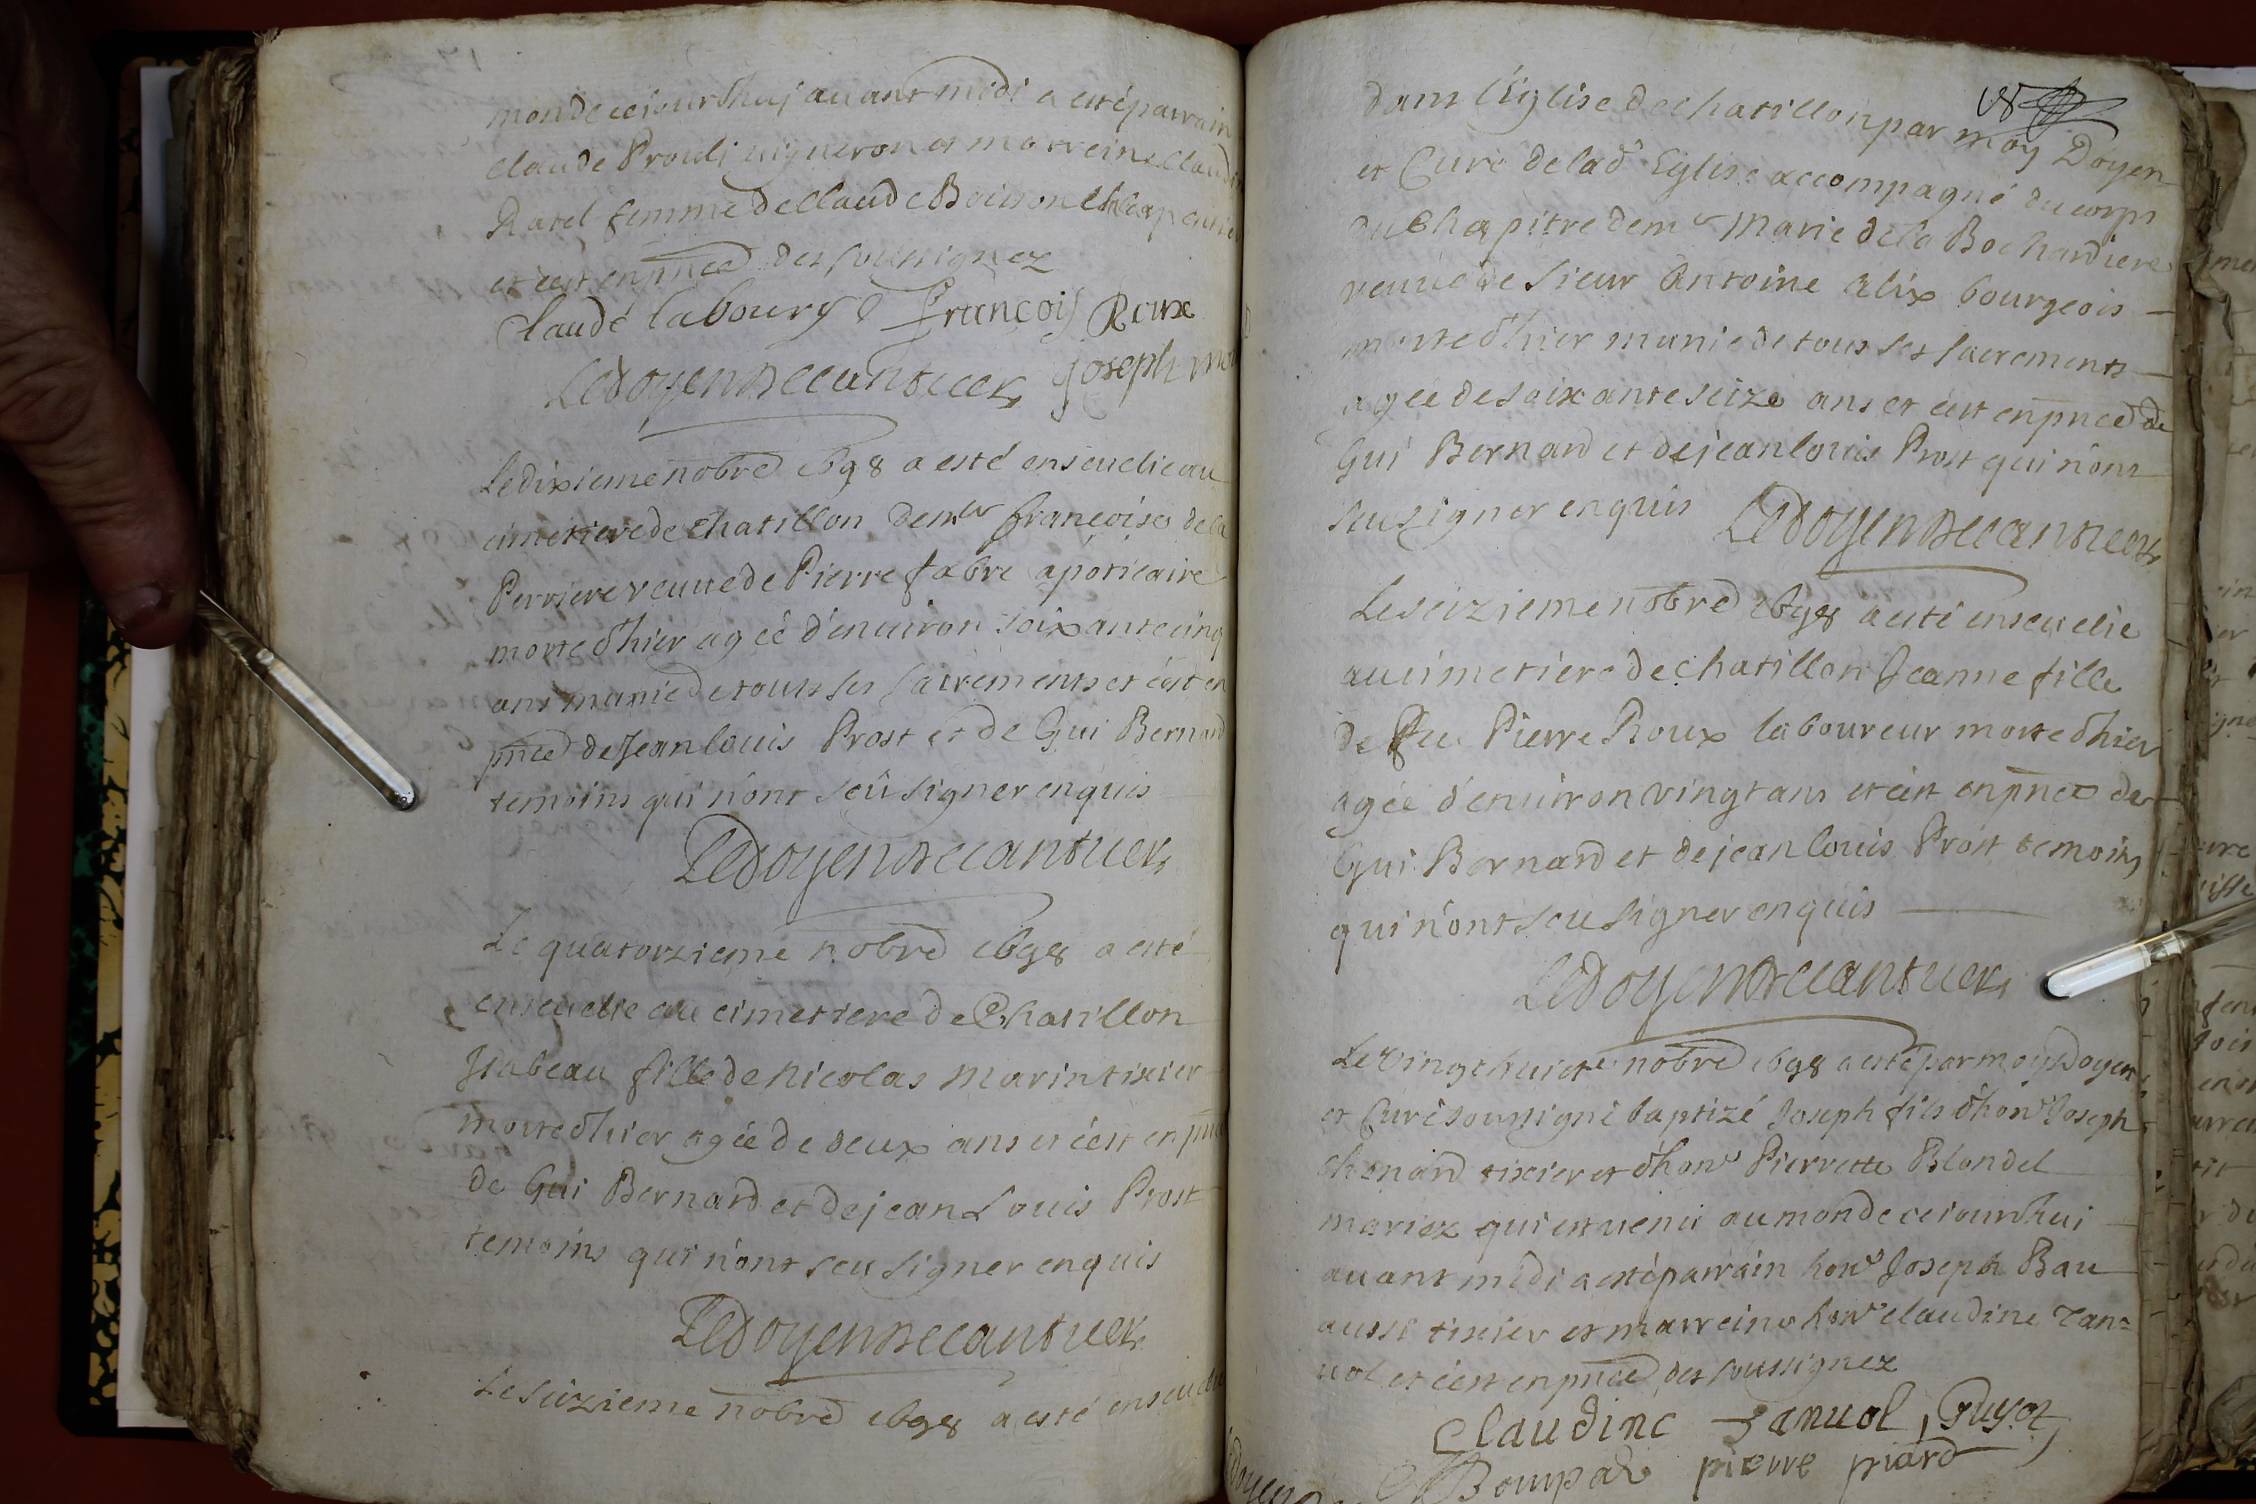 monde ce jourdhuj auant midi a esté parrain
claude Prouli uigneron et marreine Claudine
Ratel femme de Claude Boisson
et c'est en pnce des soussignez
Claude laboury françois Roux
Joseph
Ledoyen Decantuer
Le dixieme nobre 1698 a esté enseuelie au
cimetiere de chatillon demler françoise de la
Perriere veuue de Pierre fabre apoticaire
morte d'hier agéé d'enuiron soixante cinq
ans munie de tous ses sacrements et c'est en
pnce de Jean louis Prost et de Gui Bernard
temoins qui n'ont seû signer enquis
Ledoyen Decantuer
Le quatorzieme nobre 1698 a esté
enseuelie au cimetiere de Chatillon
Isabeau fille de Nicolas Marin tixier
morte d'hier agéé de deux ans et c'est en pnce
de Gui Bernard et de jean Louis Prost
temoins qui n'ont seu signer enquis
Ledoyen Decantuer
Le seizieme nobre 1698 a esté enseuelie
dans l'Eglise de chatillon par moy Doyen
et Curé de lad Eglise accompagné du corps
du Chapitre demle Marie de la Bochardiere
veuue de sieur Antoine Alix bourgeois
morte d'hier munie de tous ses sacrements
agéé de soixante seize ans et c'est en pnce de
Gui Bernard et de jean louis Prost qui n'ont
seu signer enquis Ledoyen Decantuer
Le seizieme nobre 1698 a esté enseuelie
au cimetiere de chatillon Jeanne fille
de feu Pierre Roux laboureur morte d'hier
agéé d'enuiron vingt ans et c'est en pnce de
Gui Bernard et de jean louis Prost temoins
qui n'ont seu signer enquis
Ledoyen Decantuer
Le vingt huicte nobre 1698 a esté par moy Doyen
et Curé soussigné baptizé Joseph fils d'hon Joseph
chenard tixier et d'hon Pierrette Blondel
mariez qui est uenu au monde ce iourdhui
auant midi a esté parrain hon Joseph Bau
aussi tixier et marreine hon claudine Tan=
uol et c'est en pnce des soussignez
Claudine Tanuol, Guyot
Bompar pierre piard